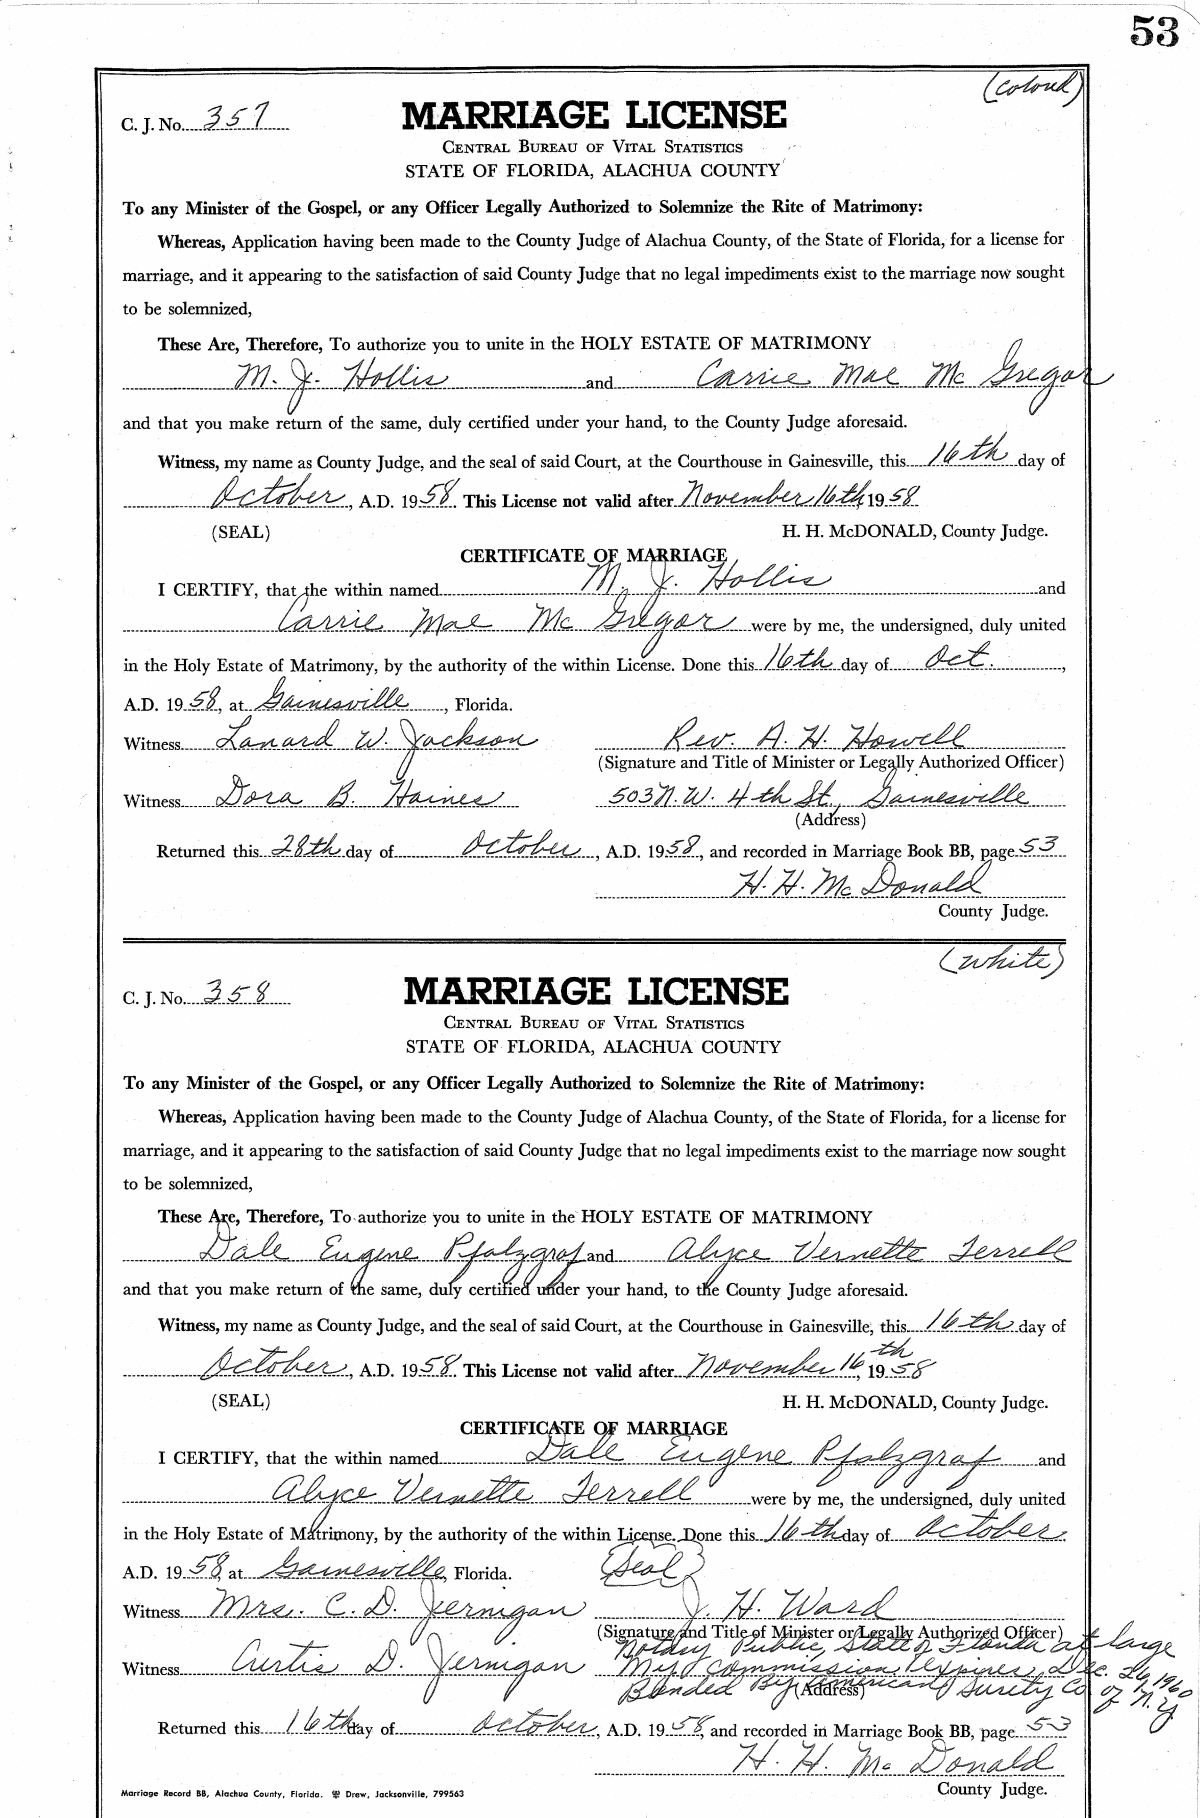 53
(colored)
C. J. No. 357
MARRIAGE LICENSE
CENTRAL BUREAU OF VITAL STATISTICS
STATE OF FLORIDA, ALACHUA COUNTY
To any Minister of the Gospel, or any Officer Legally Authorized to Solemnize the Rite of Matrimony:
Whereas, Application having been made to the County Judge of Alachua County, of the State of Florida, for a license for
marriage, and it appearing to the satisfaction of said County Judge that no legal impediments exist to the marriage now sought
to be solemnized,
These Are, Therefore, To authorize you to unite in the HOLY ESTATE OF MATRIMONY
M. J. Hollis and Carrie Mae Mc Gregor
and that you make return of the same, duly certified under your hand, to the County Judge aforesaid.
Witness, my name as County Judge, and the seal of said Court, at the Courthouse in Gainesville, this 16th day of
October, A.D. 1958. This License not valid after November 16th, 1958
(SEAL) H. H. McDONALD, County Judge.
CERTIFICATE OF MARRIAGE
I CERTIFY, that the within named M. J. Hollis and
Carrie Mae Mc Gregor were by me, the undersigned, duly united
in the Holy Estate of Matrimony, by the authority of the within License. Done this 16th day of Oct.,
A.D. 1958, at Gainesville, Florida.
Witness Lanard W. Jackson Rev. A. H. Howell
(Signature and Title of Minister or Legally Authorized Officer)
Witness Dora B. Haines 503 N.W. 4th St., Gainesville
(Address)
Returned this 28th day of October, A.D. 1958, and recorded in Marriage Book BB, page 53
H. H. Mc Donald
County Judge.
(white)
C. J. No. 358
MARRIAGE LICENSE
CENTRAL BUREAU OF VITAL STATISTICS
STATE OF FLORIDA, ALACHUA COUNTY
To any Minister of the Gospel, or any Officer Legally Authorized to Solemnize the Rite of Matrimony:
Whereas, Application having been made to the County Judge of Alachua County, of the State of Florida, for a license for
marriage, and it appearing to the satisfaction of said County Judge that no legal impediments exist to the marriage now sought
to be solemnized,
These Are, Therefore, To authorize you to unite in the HOLY ESTATE OF MATRIMONY
Dale Eugene Pfalzgraf and Alyce Vernette Terrell
and that you make return of the same, duly certified under your hand, to the County Judge aforesaid.
Witness, my name as County Judge, and the seal of said Court, at the Courthouse in Gainesville, this 16th day of
October, A.D. 1958. This License not valid after November 16th, 1958
(SEAL) H. H. McDONALD, County Judge.
CERTIFICATE OF MARRIAGE
I CERTIFY, that the within named Dale Eugene Pfalzgraf and
Alyce Vernette Terrell were by me, the undersigned, duly united
in the Holy Estate of Matrimony, by the authority of the within License. Done this 16th day of October.
A.D. 1958, at Gainesville, Florida. (Seal)
Witness Mrs. C. D. Jernigan J. H. Ward
(Signature and Title of Minister or Legally Authorized Officer)
Notary Public, State of Florida at large
Witness Curtis D. Jernigan My commission expires Dec. 26, 1960
Bonded By American Surety Co of N.Y
(Address)
Returned this 16th day of October, A.D. 1958, and recorded in Marriage Book BB, page 53
H. H. Mc Donald
County Judge.
Marriage Record BB, Alachua County, Florida. Drew, Jacksonville, 799563